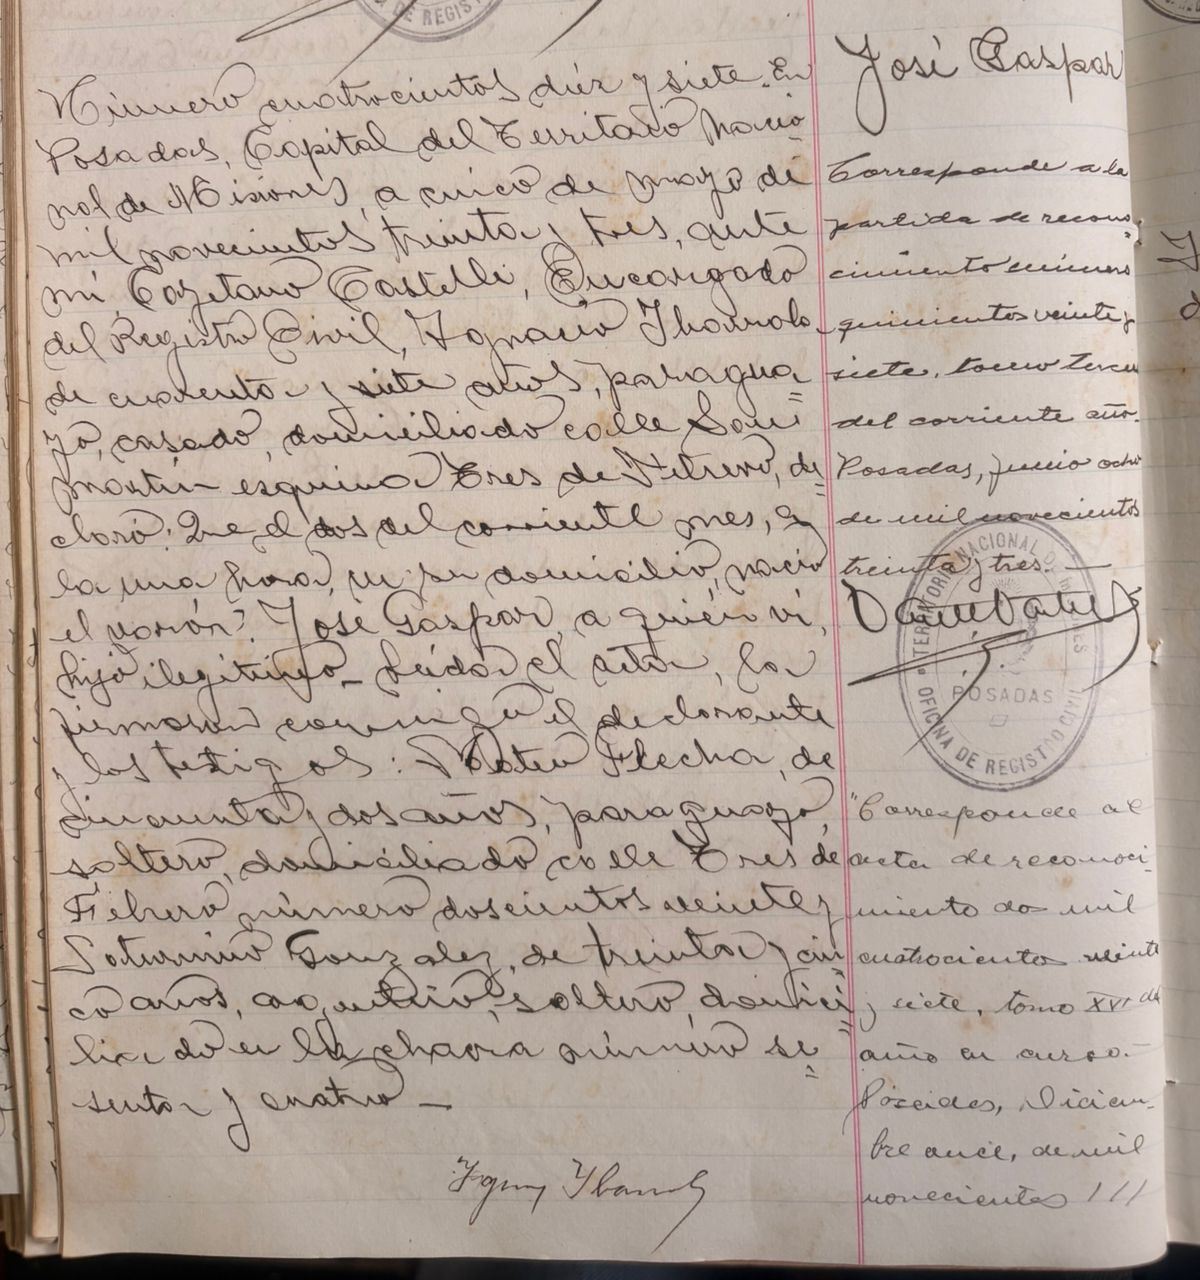 Número cuatrocientos diéz y siete. En
Posadas, Capital del Territorio Nacio
nal de Misiones, a cinco de mayo de
mil novecientos treinta y tres, ante
mí, Cayetano Castelli, Encargado
del Registro Civil, Ignacio Ibarrola
de cuarenta y siete años, paragua
yo, casado, domiciliado calle San
Martín esquina Tres de Febrero, de
claró: Que el dos del corriente mes, a
la una hora, en su domicilio, nació
el varón: José Gaspar, a quién ví,
hijo ilegítimo_ Leída el acta, la
firmaron conmigo el declarante
y los testigos: Mateo Flecha, de
cincuenta y dos años, paraguayo,
soltero, domiciliado calle Tres de
Febrero número doscientos veinte y
Saturnino Gonzalez, de treinta y cin
co años, argentino, soltero, domici
liado en la chacra número se
senta y cuatro_
José Gaspar
Corresponde a la
partida de recono
cimiento número
quinientos veinte y
siete, tomo tercero
del corriente año.
Posadas, junio ocho
de mil novecientos
treinta y tres.—
TERRITORIO NACIONAL DE MISIONES
POSADAS
OFICINA DE REGISTRO CIVIL
"Corresponde al
acta de reconoci-
miento dos mil
cuatrocientos veinte
y siete, tomo XVI del
año en curso.-
Posadas, Diciem-
bre once, de mil
novecientos ///
DE REGIST